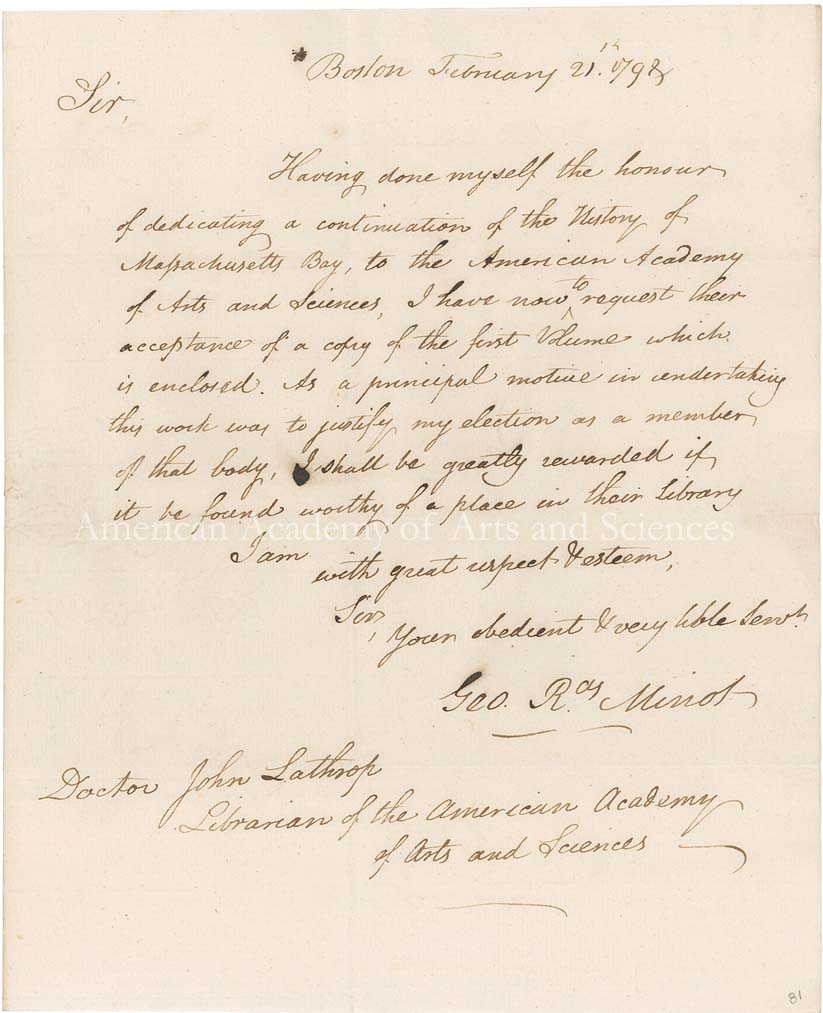 Boston February 21.st 1798
Sir,
Having done myself the honour
of dedicating a continuation of the History of
Massachusetts Bay, to the American Academy
of Arts and Sciences, I have now to request their
acceptance of a copy of the first Volume which
is enclosed. As a principal motive in undertaking
this work was to justify my election as a member
of that body, I shall be greatly rewarded if
it be found worthy of a place in their Library
American Academy of Arts and Sciences
I am
with great respect & esteem,
Sir,
Your obedient & very hble Servt.
Geo. R.as Minot
Doctor John Lathrop
Librarian of the American Academy
of Arts and Sciences
81